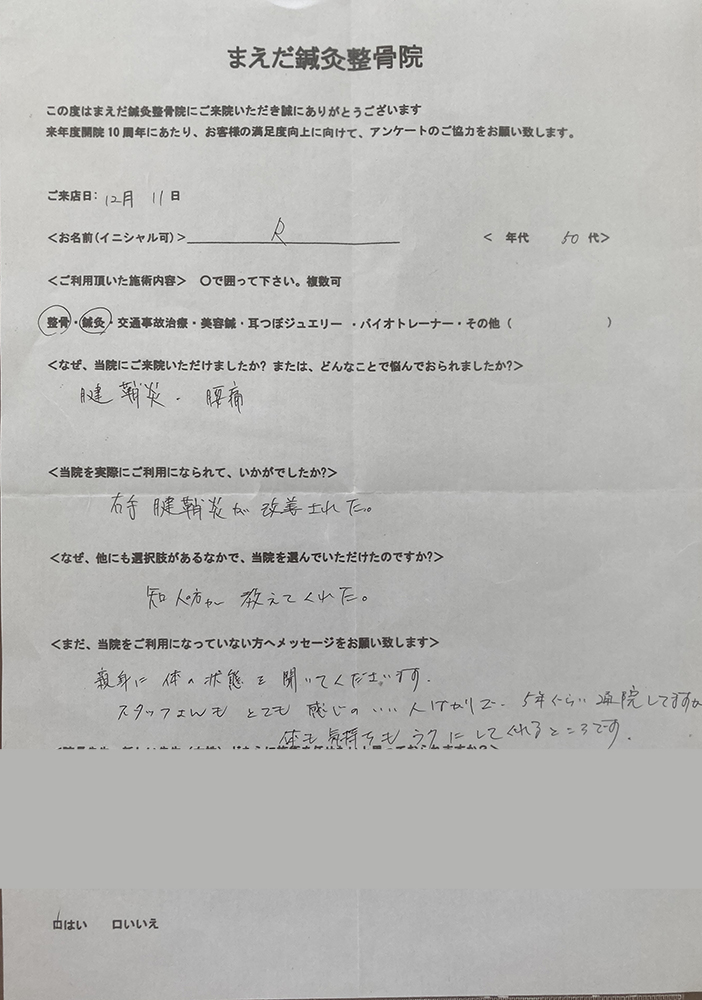 まえだ鍼灸整骨院
この度はまえだ鍼灸整骨院にご来院いただき誠にありがとうございます
来年度開院10周年にあたり、お客様の満足度向上に向けて、アンケートのご協力をお願い致します。
ご来店日: 12月 11日
<お名前(イニシャル可)> R < 年代 50 代>
<ご利用頂いた施術内容> 〇で囲って下さい。複数可
整骨・鍼灸・交通事故治療・美容鍼・耳つぼジュエリー ・バイオトレーナー・その他 ( )
<なぜ、当院にご来院いただけましたか? または、どんなことで悩んでおられましたか?>
腱鞘炎・腰痛
<当院を実際にご利用になられて、いかがでしたか?>
右手 腱鞘炎が 改善された。
<なぜ、他にも選択肢があるなかで、当院を選んでいただけたのですか?>
知人の方が 教えてくれた。
<まだ、当院をご利用になっていない方へメッセージをお願い致します>
親身に 体の状態を聞いてくださいます。
スタッフさんも とても 感じの いい 人ばかりで、5年ぐらい通院してますが
体も気持ちもラクにしてくれるところです。
口はい 口いいえ